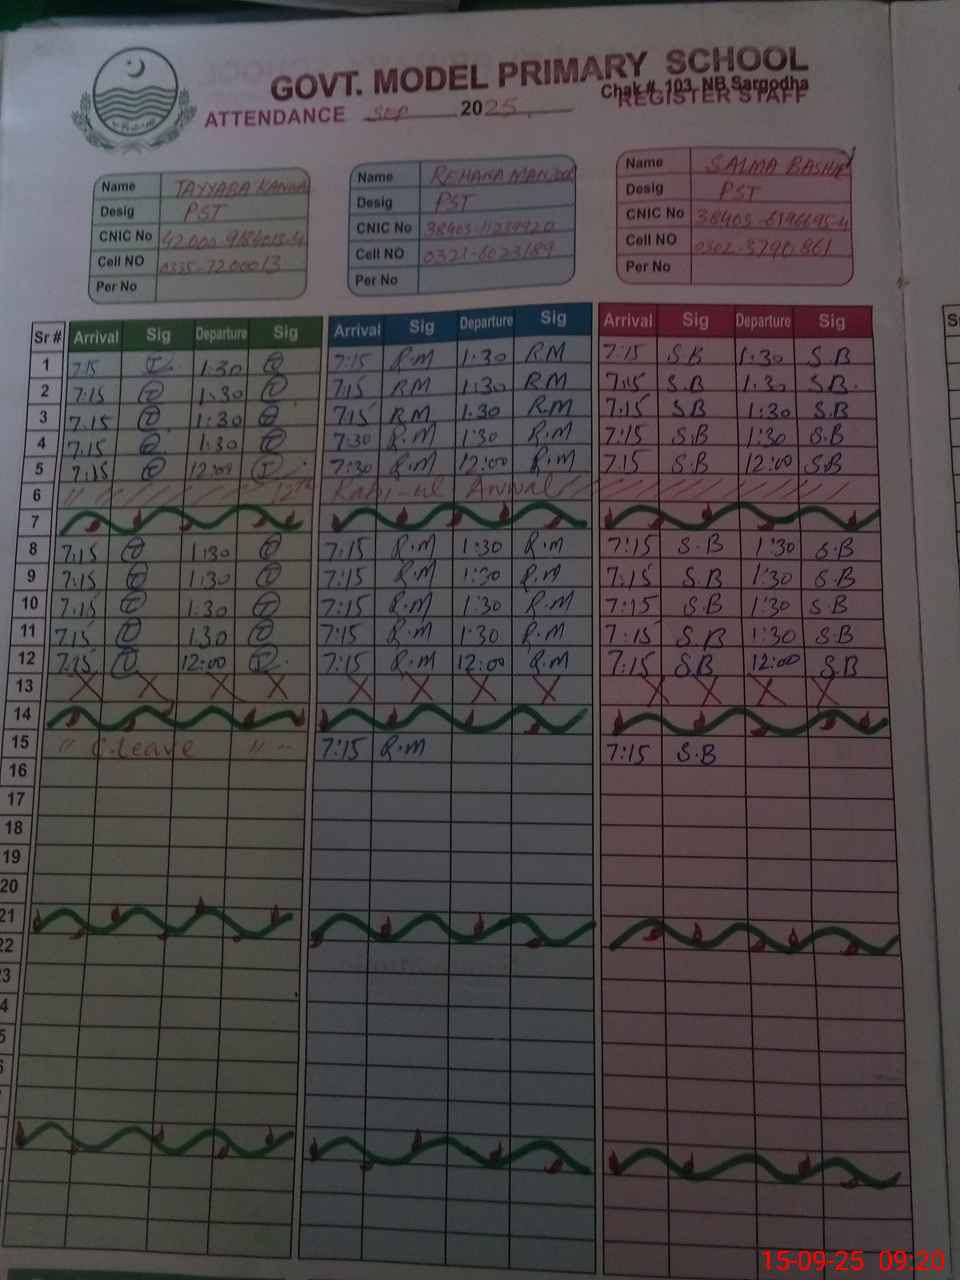 GOVT. MODEL PRIMARY SCHOOL
Chak # 103 NB Sargodha
ATTENDANCE Sep 2025 REGISTER STAFF
Name TAYYABA Name REHANA Name SALMA BASHIR
Desig PST Desig PST Desig PST
CNIC No CNIC No CNIC No
Cell NO Cell NO Cell NO
Per No Per No Per No
Sr # Arrival Sig Departure Sig Arrival Sig Departure Sig Arrival Sig Departure Sig
1 7:15 1:30 7:15 R.M 1:30 RM 7:15 S.B 1:30 S.B
2 7:15 1:30 7:15 RM 1:30 RM 7:15 S.B 1:30 S.B.
3 7:15 1:30 7:15 RM 1:30 R.M 7:15 SB 1:30 S.B
4 7:15 1:30 7:30 R.M 1:30 R.M 7:15 S.B 1:30 S.B
5 7:15 12:00 7:30 R.M 12:00 R.M 7:15 S.B 12:00 S.B
6 12th Rabi-ul Awwal
7
8 7:15 1:30 7:15 R.M 1:30 R.M 7:15 S.B 1:30 S.B
9 7:15 1:30 7:15 R.M 1:30 R.M 7:15 S.B 1:30 S.B
10 7:15 1:30 7:15 R.M 1:30 R.M 7:15 S.B 1:30 S.B
11 7:15 1:30 7:15 R.M 1:30 R.M 7:15 S.B 1:30 S.B
12 7:15 12:00 7:15 R.M 12:00 R.M 7:15 S.B 12:00 S.B
13 X X X X X X X X X X X X
14
15 " C.Leave " " 7:15 R.M 7:15 S.B
16
17
18
19
20
21
22
23
15-09-25 09:20